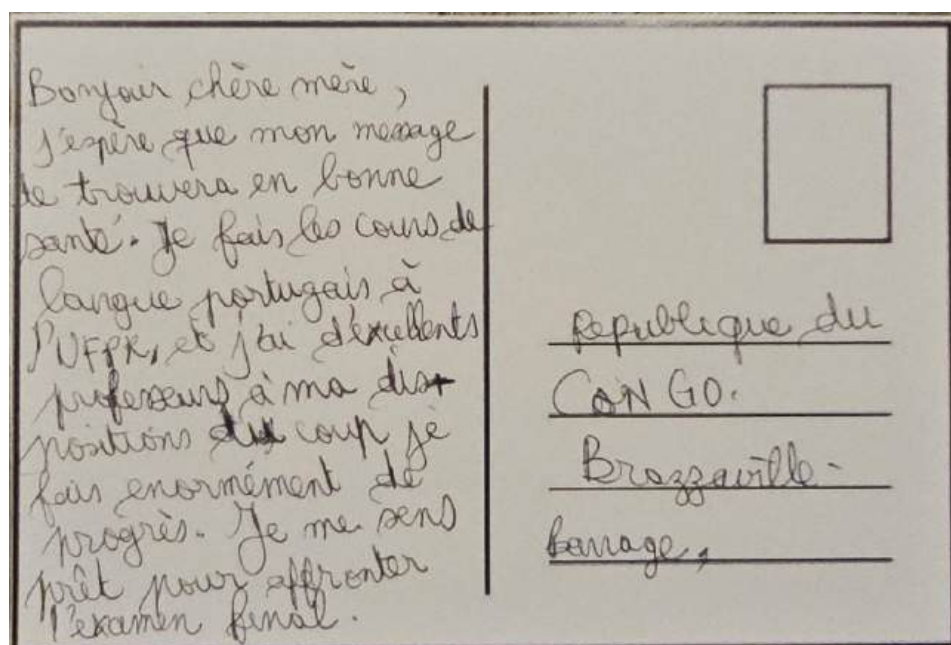 Bonjour chère mère,
j'espère que mon message
te trouvera en bonne
santé. Je fais les cours de
langue portugais à
l'UFPR, et j'ai d'excellents
professeurs à ma dis-
positions du coup je
fais enormément de
progrès. Je me sens
prêt pour affronter
l'examen final.
Republique du
CONGO.
Brazzaville-
barrage,